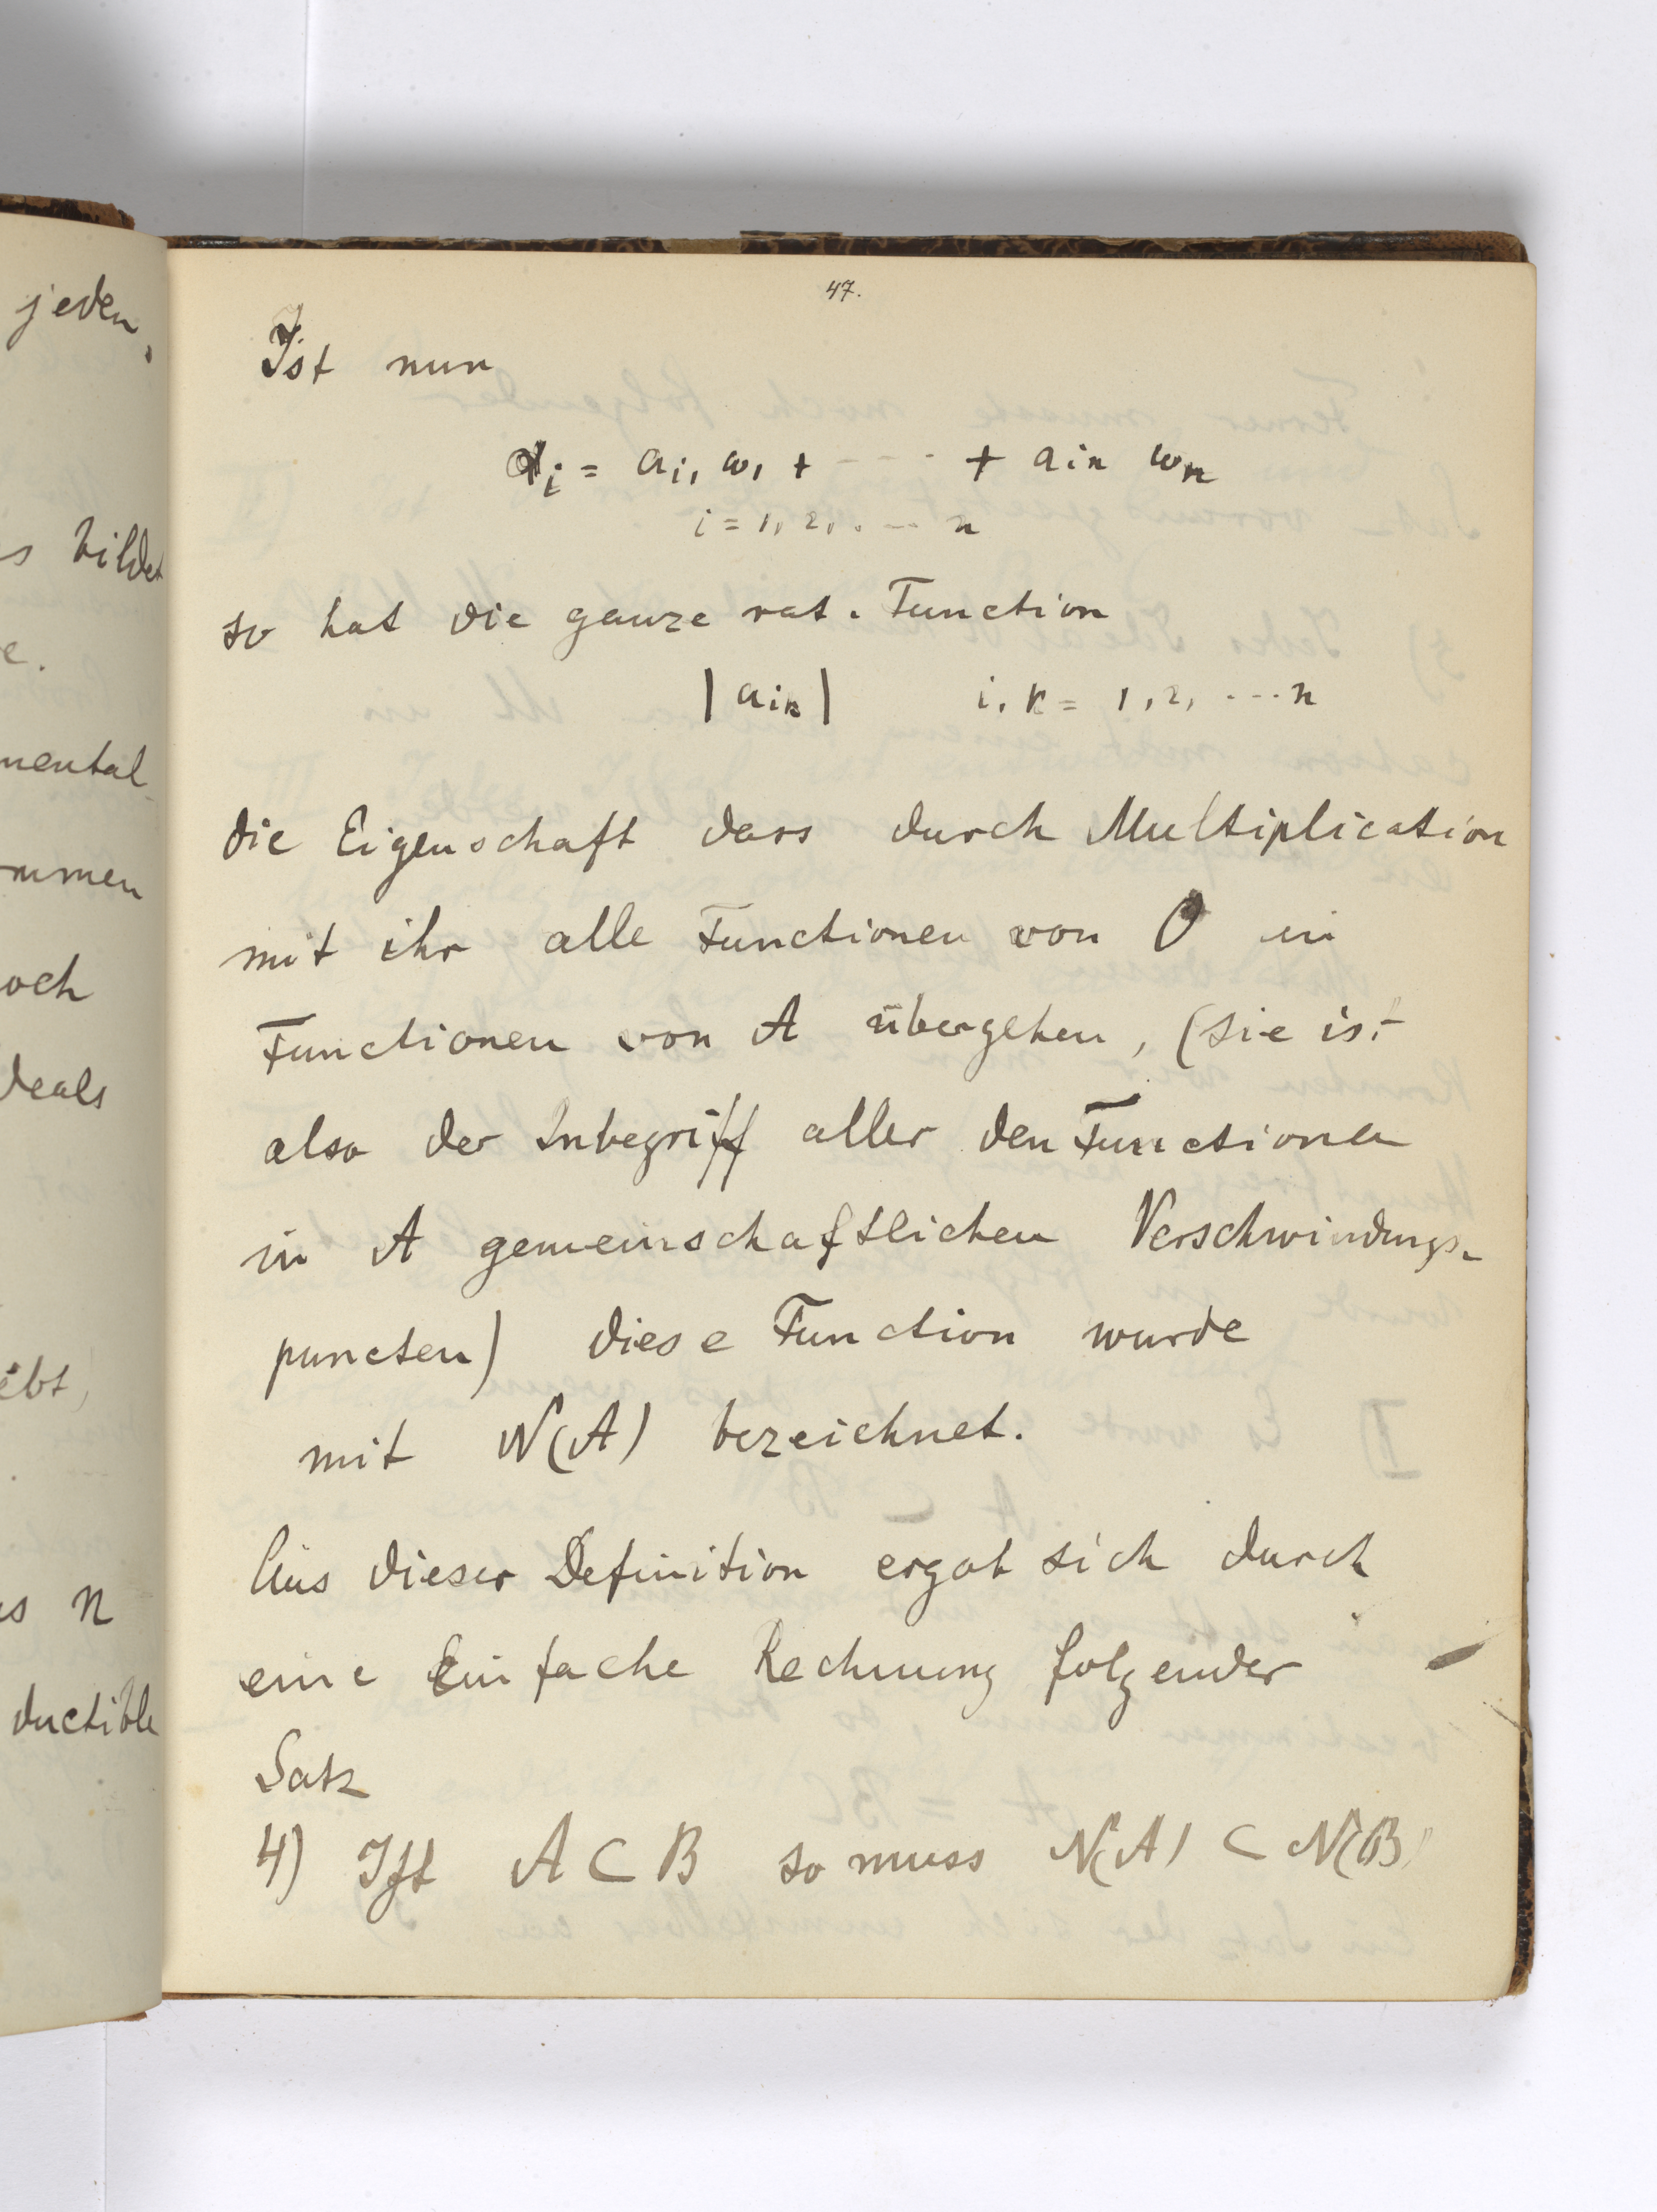 jeden,
s bildet
e.
mental-
mmen
och
deals
ebt,
s n
ductible
47.
Ist nun
αi = ai1 ω1 + - - - · + ain ωn
i = 1, 2, . -- n
so hat die ganze rat. Function
|aik| i, k = 1, 2, ---n
die Eigenschaft dass durch Multiplication
mit ihr alle Functionen von O in
Functionen von A übergehen, (sie ist
also der Inbegriff aller den Functionen
in A gemeinschaftlichen Verschwindungs-
puncten) diese Function wurde
mit N(A) bezeichnet.
Aus dieser Definition ergab sich durch
eine Einfache Rechnung folgender
Satz
4) Ist A ⊂ B so muss N(A) ⊂ N(B)